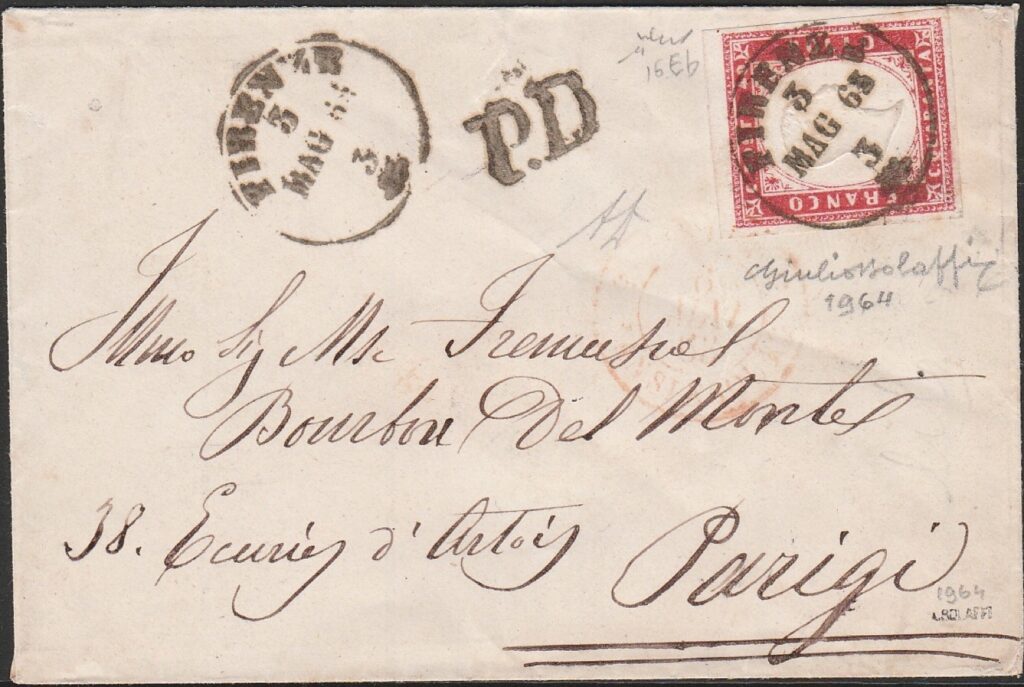 FIRENZE
3
MAG 63
3
P.D
16Eb
FIRENZE
3
MAG 63
3
FRANCO
C. QUARANTA
Giulio Bolaffi
1964
Illmo Sig Mse
Bourbon Del Monte
38. Ecuries d'Artois
Parigi
1964
A. BOLAFFI